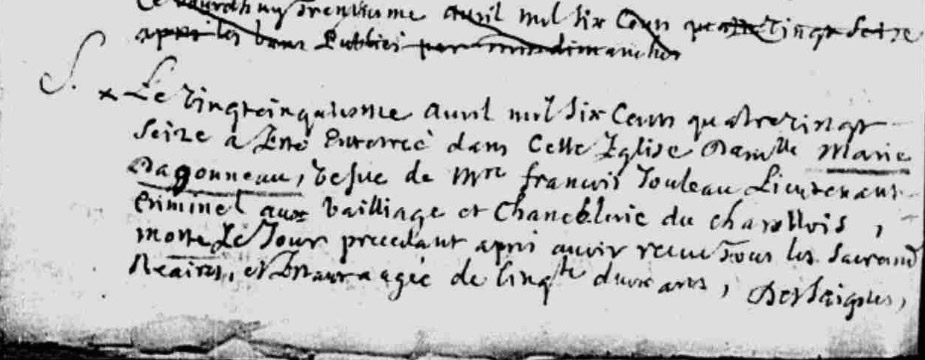 Ce Jourdhuy trentiesme avril mil six Cens quatre vingt seize
apres les bans Publiés par trois dimanches
S. x Le vingtcinquiesme avril mil six Cens quatrevingt
seize a Esté Enterrée dans Cette Eglise Damlle Marie
Dagonneau, vefve de Mre francois Touleau Lieutenant
Criminel aux bailliage et Chancellerie du charollois,
morte Le Jour precedant apres avoir receu tous les sacrem
Estant aagée de Cinqte deux ans,